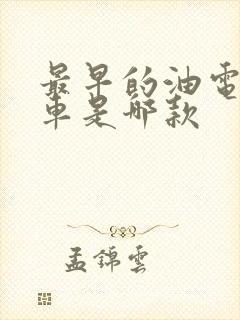 最早的油電
車是哪款
孟錦雲